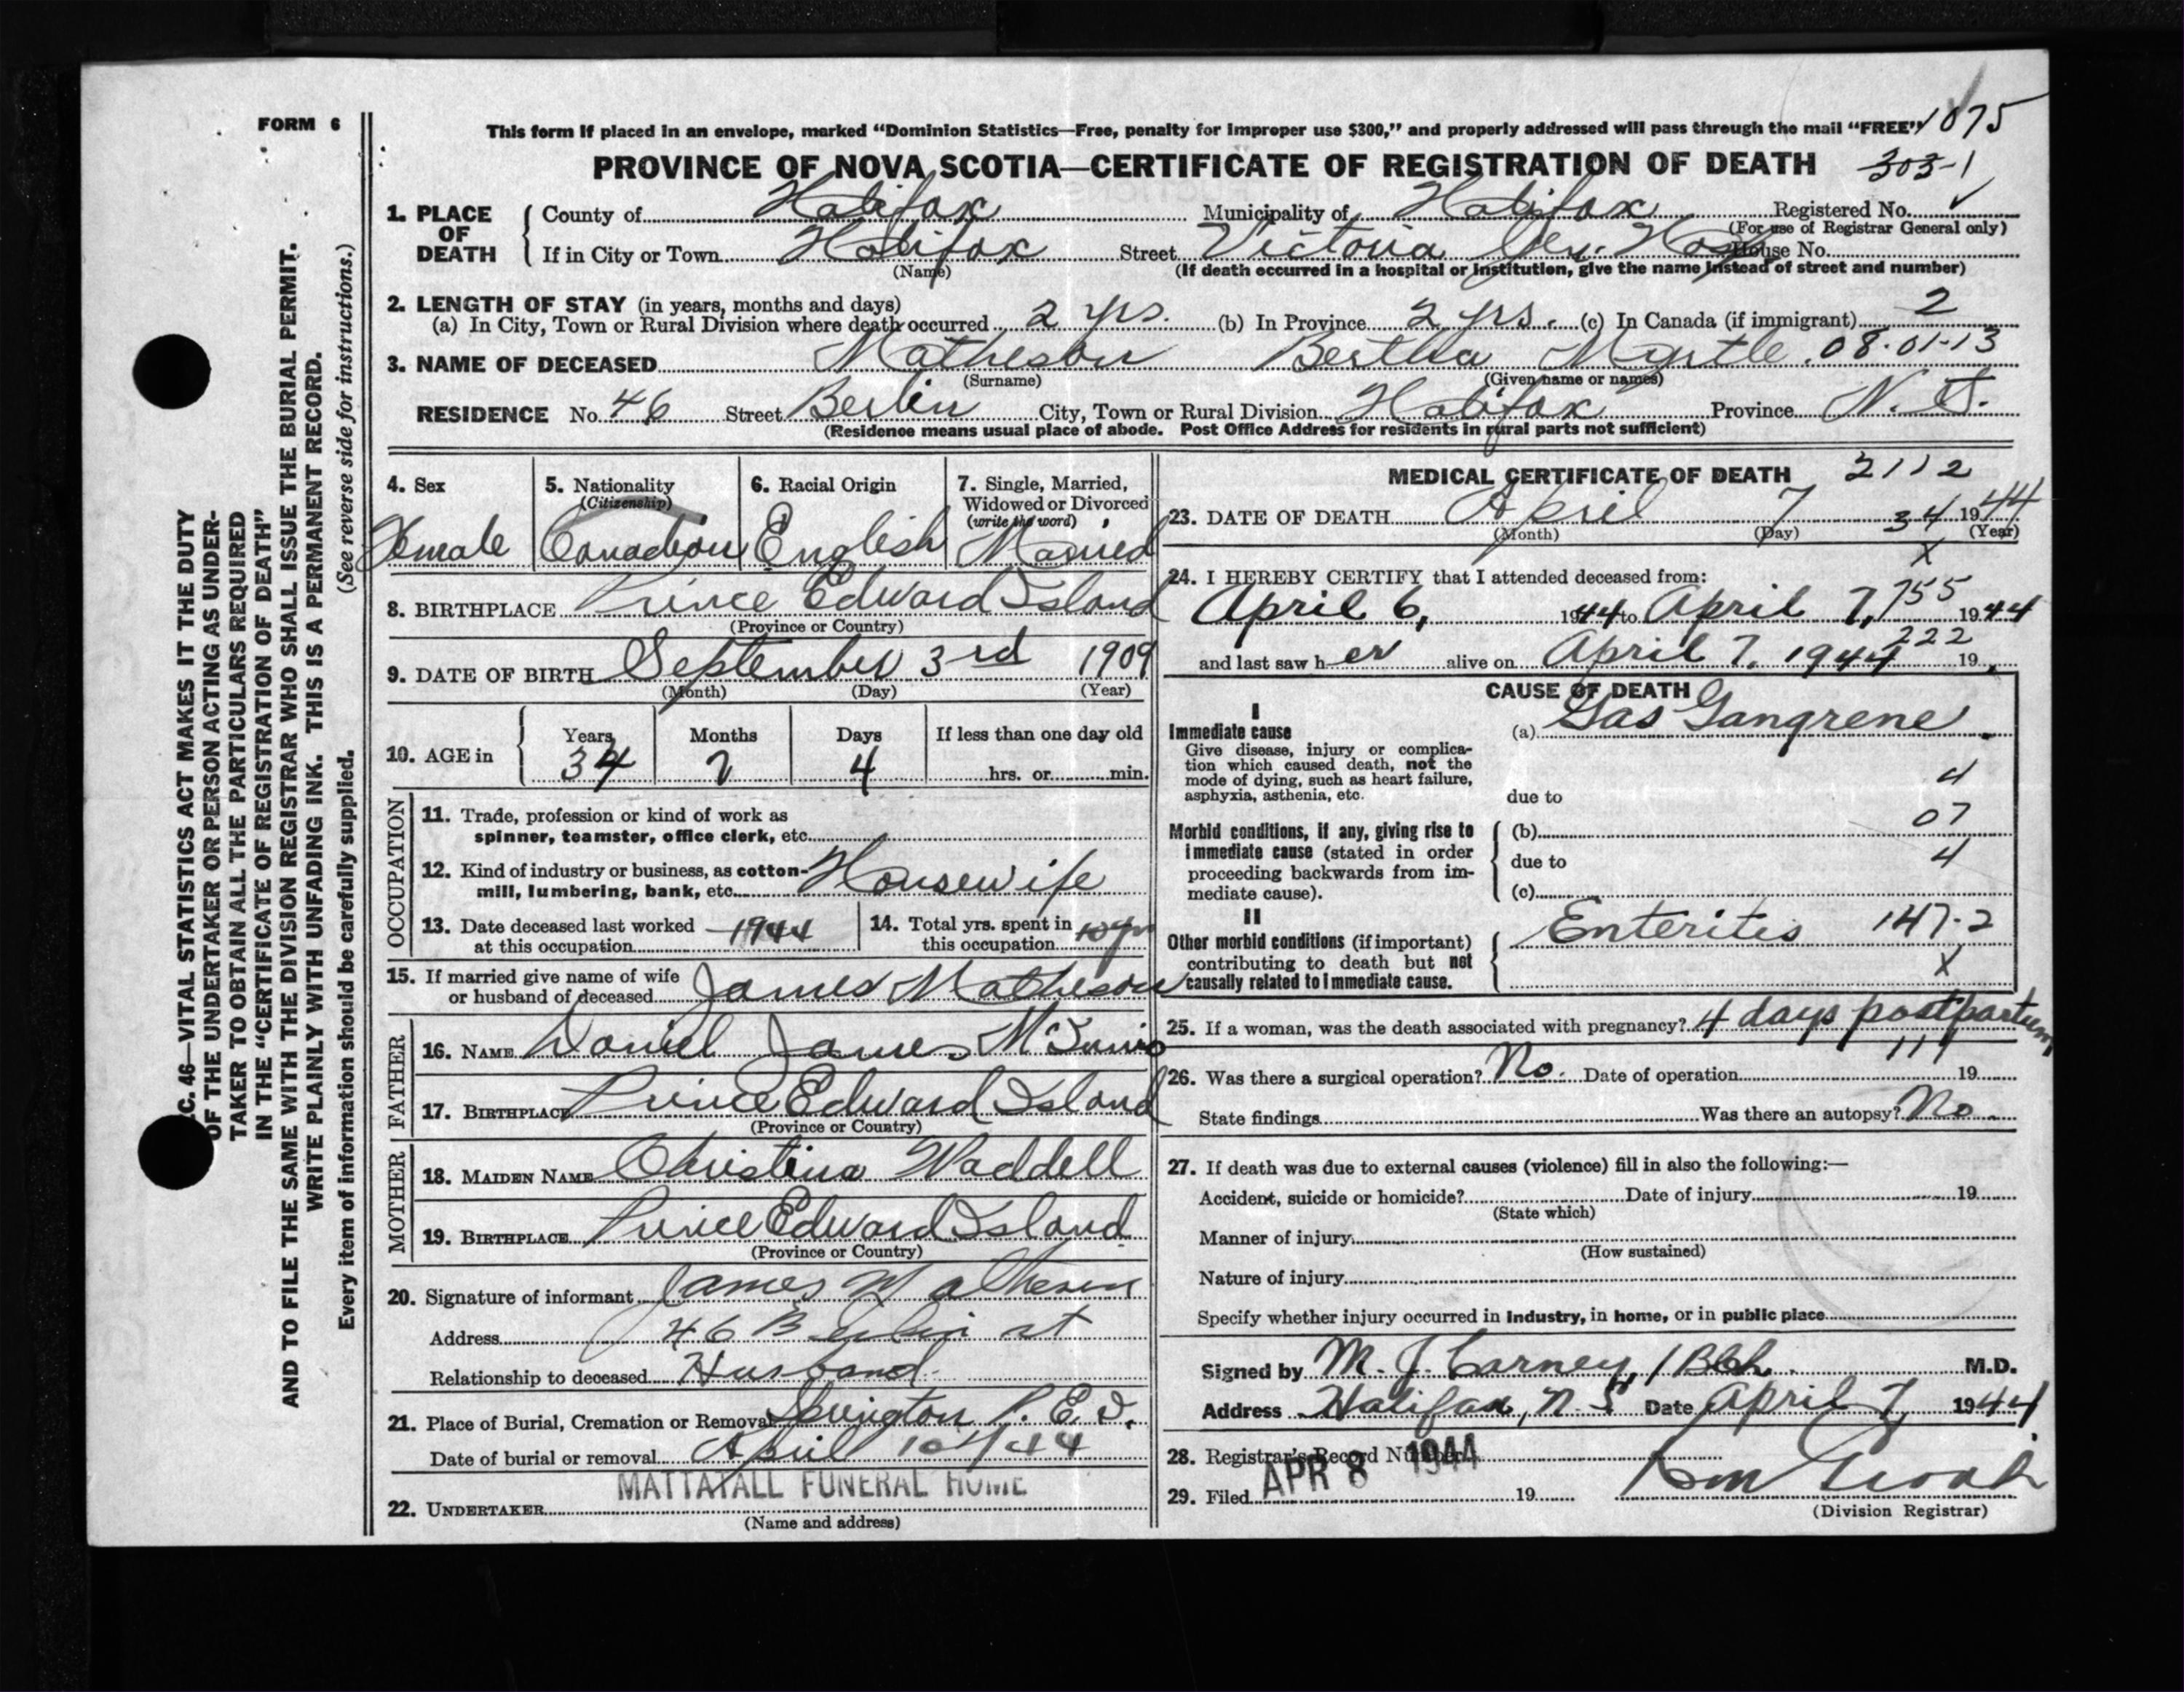 FORM 6
This form if placed in an envelope, marked "Dominion Statistics—Free, penalty for improper use $300," and properly addressed will pass through the mail "FREE" 1075
PROVINCE OF NOVA SCOTIA—CERTIFICATE OF REGISTRATION OF DEATH 303-1
1. PLACE OF DEATH County of Halifax Municipality of Halifax Registered No.
(For use of Registrar General only)
If in City or Town Halifax Street Victoria Gen. Hosp House No.
(Name) (If death occurred in a hospital or institution, give the name instead of street and number)
2. LENGTH OF STAY (in years, months and days)
(a) In City, Town or Rural Division where death occurred 2 yrs. (b) In Province 2 yrs. (c) In Canada (if immigrant) 2
3. NAME OF DECEASED Matheson Bertha Myrtle 08-01-13
(Surname) (Given name or names)
RESIDENCE No. 46 Street Berlin City, Town or Rural Division Halifax Province N.S.
(Residence means usual place of abode. Post Office Address for residents in rural parts not sufficient)
4. Sex 5. Nationality (Citizenship) 6. Racial Origin 7. Single, Married, Widowed or Divorced (write the word)
Female Canadian English Married
8. BIRTHPLACE Prince Edward Island
(Province or Country)
9. DATE OF BIRTH September 3rd 1909
(Month) (Day) (Year)
10. AGE in Years Months Days If less than one day old
34 7 4 hrs. or min.
OCCUPATION
11. Trade, profession or kind of work as
spinner, teamster, office clerk, etc.
12. Kind of industry or business, as cotton-
mill, lumbering, bank, etc. Housewife
13. Date deceased last worked
at this occupation 1944
14. Total yrs. spent in
this occupation 10 yrs
15. If married give name of wife
or husband of deceased James Matheson
FATHER
16. NAME Daniel James
17. BIRTHPLACE Prince Edward Island
(Province or Country)
MOTHER
18. MAIDEN NAME Christina Waddell
19. BIRTHPLACE Prince Edward Island
(Province or Country)
20. Signature of informant James Matheson
Address 46 Berlin st
Relationship to deceased Husband
21. Place of Burial, Cremation or Removal P.E.I.
Date of burial or removal April 10/44
MATTATALL FUNERAL HOME
22. UNDERTAKER
(Name and address)
MEDICAL CERTIFICATE OF DEATH 2112
23. DATE OF DEATH April 7 34 1944
(Month) (Day) (Year)
X
24. I HEREBY CERTIFY that I attended deceased from:
April 6, 1944 to April 7, 1944
755
222
and last saw her alive on April 7. 1944 19
CAUSE OF DEATH
I
Immediate cause (a) Gas Gangrene
Give disease, injury or complica-
tion which caused death, not the
mode of dying, such as heart failure,
asphyxia, asthenia, etc.
due to 4
Morbid conditions, if any, giving rise to (b) 07
immediate cause (stated in order due to 4
proceeding backwards from im-
mediate cause). (c)
II
Other morbid conditions (if important) Enteritis 147-2
contributing to death but not X
causally related to immediate cause.
25. If a woman, was the death associated with pregnancy? 4 days postpartum
111
26. Was there a surgical operation? No. Date of operation 19
State findings Was there an autopsy? No.
27. If death was due to external causes (violence) fill in also the following:—
Accident, suicide or homicide? Date of injury 19
(State which)
Manner of injury
(How sustained)
Nature of injury
Specify whether injury occurred in industry, in home, or in public place
Signed by M. J. Carney M.D.
Address Halifax, N.S Date April 7, 1944
28. Registrar's Record Number
APR 8 1944
29. Filed 19
(Division Registrar)
C. 46—VITAL STATISTICS ACT MAKES IT THE DUTY
OF THE UNDERTAKER OR PERSON ACTING AS UNDER-
TAKER TO OBTAIN ALL THE PARTICULARS REQUIRED
IN THE "CERTIFICATE OF REGISTRATION OF DEATH"
AND TO FILE THE SAME WITH THE DIVISION REGISTRAR WHO SHALL ISSUE THE BURIAL PERMIT.
WRITE PLAINLY WITH UNFADING INK. THIS IS A PERMANENT RECORD.
Every item of information should be carefully supplied. (See reverse side for instructions.)